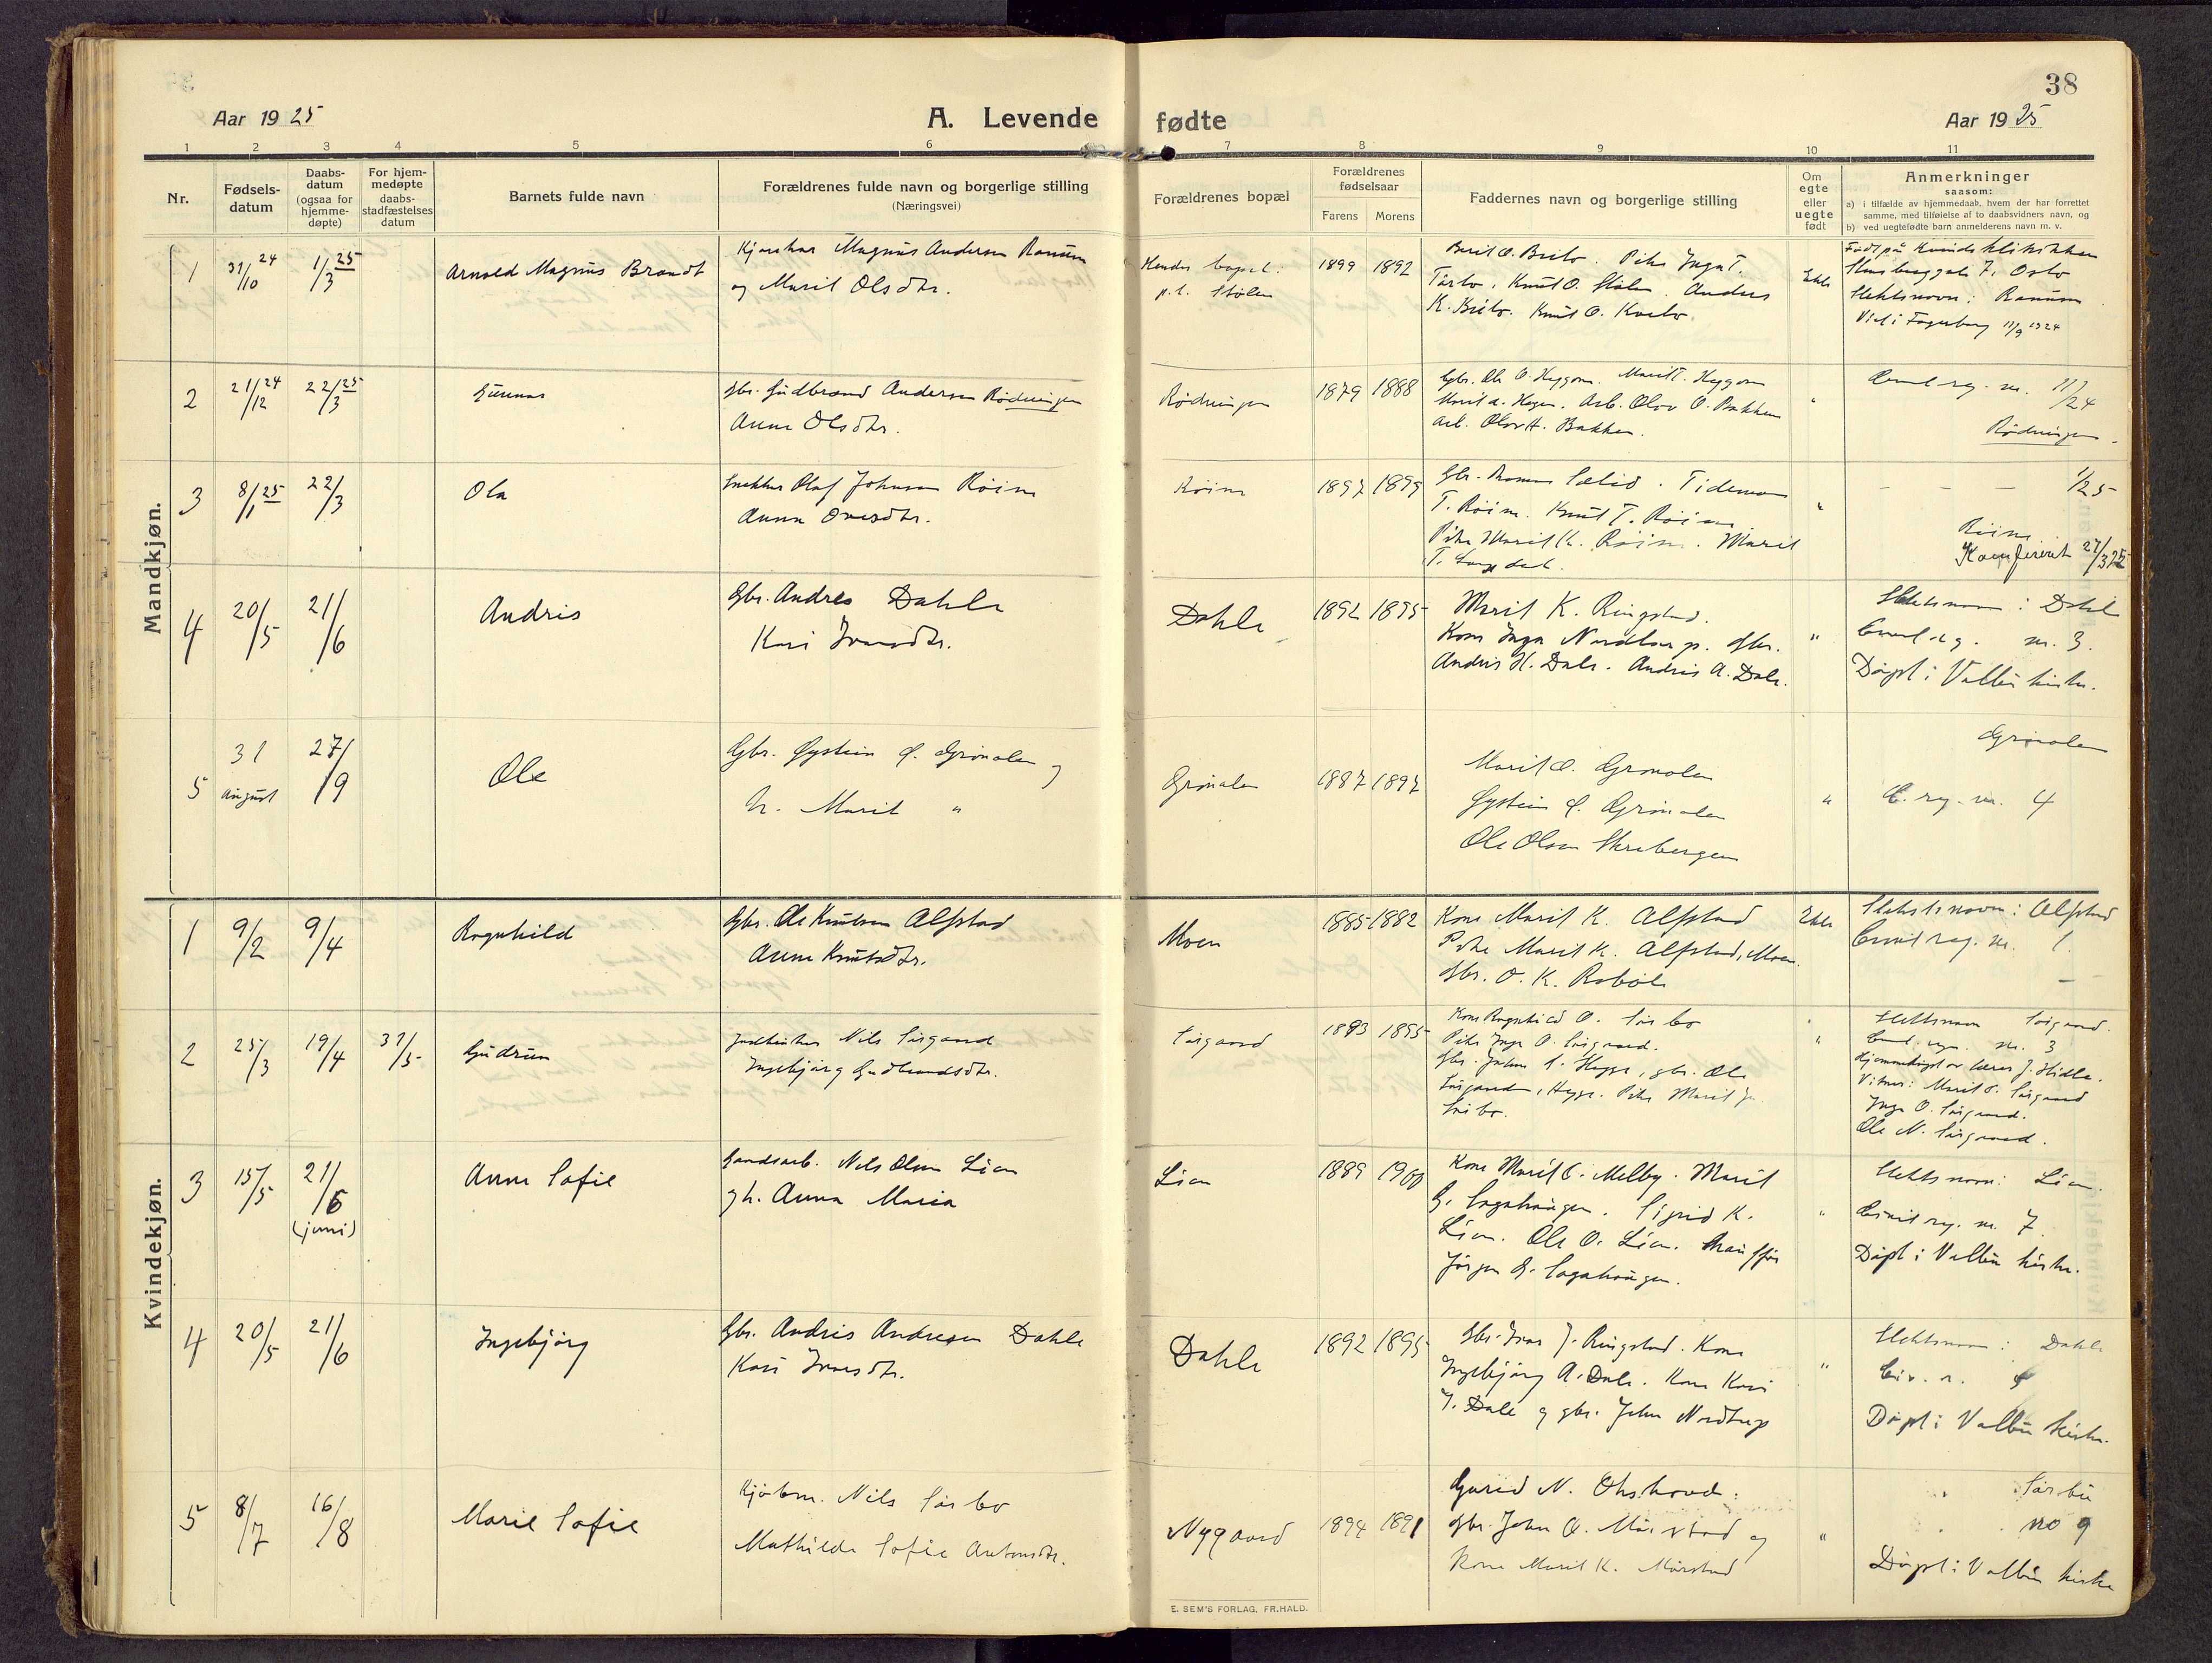 38
Aar 19 25
A. Levende
fødte
Aar 19 25
1 2 3 4 5 6 7 8 9 10 11
Nr.
Fødsels-
datum
Daabs-
datum
(ogsaa for
hjemme-
døpte)
For hjem-
medøpte
daabs-
stadfæstelses
datum
Barnets fulde navn
Forældrenes fulde navn og borgerlige stilling
(Næringsvei)
Forældrenes bopæl
Forældrenes
fødselsaar
Farens Morens
Faddernes navn og borgerlige stilling
Om
egte
eller
uegte
født
Anmerkninger
saasom:
a) i tilfælde av hjemmedaab, hvem der har forrettet
samme, med tilføielse af to daabsvidners navn, og
b) ved uegtefødte barn anmelderens navn m. v.
Mandkjøn.
1
31/10 24
1/3 25
Arnold Magnus Brandt
Magnus Andersen Ranum
og Marit Olsdtr.
Hendes bopæl:
p.t. Stølen
1899 1892
Berit O. Brito. Pike Inga T.
Knut O. Stølen. Andres
K. Brito. Knut O. Kvito.
Ekte
Født på Kvindeklinikken
7, Oslo
Slektsnavn: Ranum
Viet i Fagerborg 11/9 1924
2
21/12 24
22/3 25
Gunnar
Gbr. Gudbrand Andersen Rødningen
Anne Olsdtr.
Rødningen
1879 1888
Gbr. Ole O. Heggom. Marit T. Heggom
Marit A. Hagen. Arb. Olav O. Bakken
Arb. Olav H. Bakken.
"
Civil reg. nr. 11/24
Rødningen.
3
8/1 25
22/3
Ola
Snekker Olaf Johnsen Røine
Anna Oresdtr.
Røine
1897 1899
Gbr. Sælid. Tideman
T. Røine. Knut T. Røine
Pike Marit K. Røine. Marit
T.
"
– – – 1/25
Røine
Konfirert 27/3 25
4
20/5
21/6
Andris
Gbr. Andres Dahle
Kari Ivarsdtr.
Dahle
1892 1895
Marit K. Ringstad.
Kone Inga Nordtorp. Gbr.
Andris H. Dale. Andris A. Dale.
"
Slektsnavn: Dahle
Civil reg. nr. 3.
Døpt i Volbu kirke.
5
31
august
27/9
Ole
Gbr. Øystein Ø. Grønolen og
h. Marit "
Grønolen
1887 1897
Marit O. Grønolen
Øystein Ø. Grønolen
Ole Olsen Skrebergen
"
Grønolen
C. reg. nr. 4
Kvindekjøn.
1
9/2
9/4
Ragnhild
Gbr. Ole Knutsen Alfstad
Anne Knutsdtr.
Moen
1885 1882
Kone Marit K. Alfstad
Pike Marit K. Alfstad, Moen.
Gbr. O. K. Robøle
Ekte
Slektsnavn: Alfstad
Civil reg. nr. 1.
2
25/3
19/4
31/5
Gudrun
Nils Sørgaard
Ingebjørg Gudbrandsdtr.
Sørgaard
1893 1895
Kone Ragnhild O. Sørbo
Pike Inga O. Sørgaard.
Gbr. Johan Hegge, gbr. Ole
Sørgaard, Hegge. Pike Marit
Sørbo.
"
Slektsnavn Sørgaard.
Civil reg. nr. 3
Hjemmedøpt av lærer J. Hidle.
Vitner: Marit O. Sørgaard
Inga O. Sørgaard.
Ole N. Sørgaard.
3
15/5
21/6
(juni)
Anne Sofie
Gaardsarb. Nils Olsen Lien
og h. Anna Maria
Lien
1889 1900
Kone Marit O. Melby. Marit
G. Sagahaugen. Sigrid K.
Lien. Ole O. Lien. Chauffør
Jørgen G. Sagahaugen.
"
Slektsnavn: Lien.
Civil reg. nr. 7
Døpt i Volbu kirke.
4
20/5
21/6
Ingebjørg
Gbr. Andris Andresen Dahle
Kari Ivarsdtr.
Dahle
1892 1895
Gbr. Ivar J. Ringstad. Kone
Ingebjørg A. Dale. Kone Kari
J. Dale og gbr. John Nordtorp
"
Slektsnavn: Dahle
Civ. r.
Døpt i Volbu kirke.
5
8/7
16/8
Marie Sofie
Kjøbm. Nils Sørbo
Mathilde Sofie Antonsdtr.
Nygaard
1894 1891
Gurid N. Okshovd.
Gbr. John O. Mørstad og
Kone Marit K. Mørstad
"
Sørbu
no 9
Døpt i Volbu kirke
E. SEM'S FORLAG, FR.HALD.